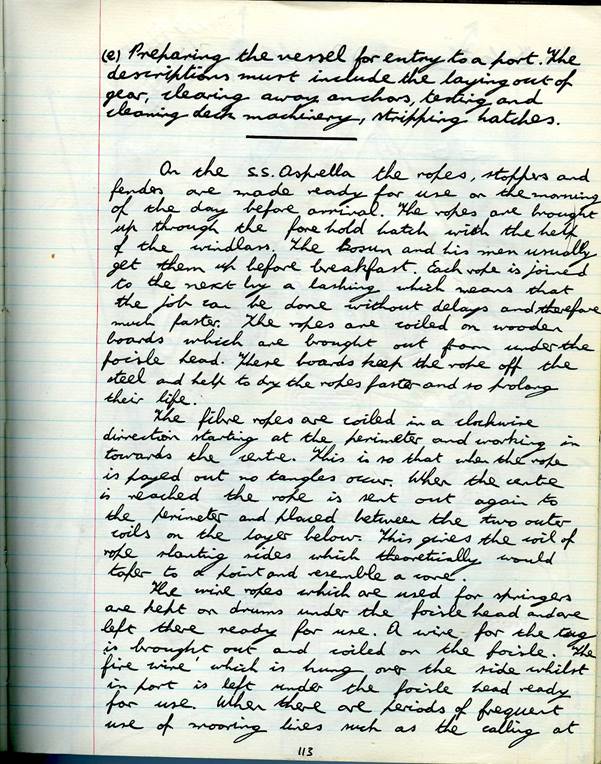 (e) Preparing the vessel for entry to a port. The
descriptions must include the laying out of
gear, clearing away anchors, testing and
cleaning deck machinery, stripping hatches.
On the S.S. Asprella the ropes, stoppers and
fender are made ready for use on the morning
of the day before arrival. The ropes are brought
up through the fore hold hatch with the help
of the windlass. The Bosun and his men usually
get them up before breakfast. Each rope is joined
to the next by a lashing which means that
the job can be done without delays and therefore
much faster. The ropes are coiled on wooden
boards which are brought out from under the
focisle head. These boards keep the rope off the
steel and help to dry the ropes faster and so prolong
their life.
The fibre ropes are coiled in a clockwise
direction starting at the perimeter and working in
towards the centre. This is so that when the rope
is payed out no tangles occur. When the centre
is reached the rope is sent out again to
the perimeter and placed between the two outer
coils on the layer below. This gives the coil of
rope slanting sides which theoretically would
taper to a point and resemble a cone.
The wire ropes which are used for springers
are kept on drums under the focisle head and are
left there ready for use. A wire for the tug
is brought out and coiled on the focisle. The
'fire wire' which is hung over the side whilst
in port is left under the focisle head ready
for use. When there are periods of frequent
use of mooring lines such as the calling at
113